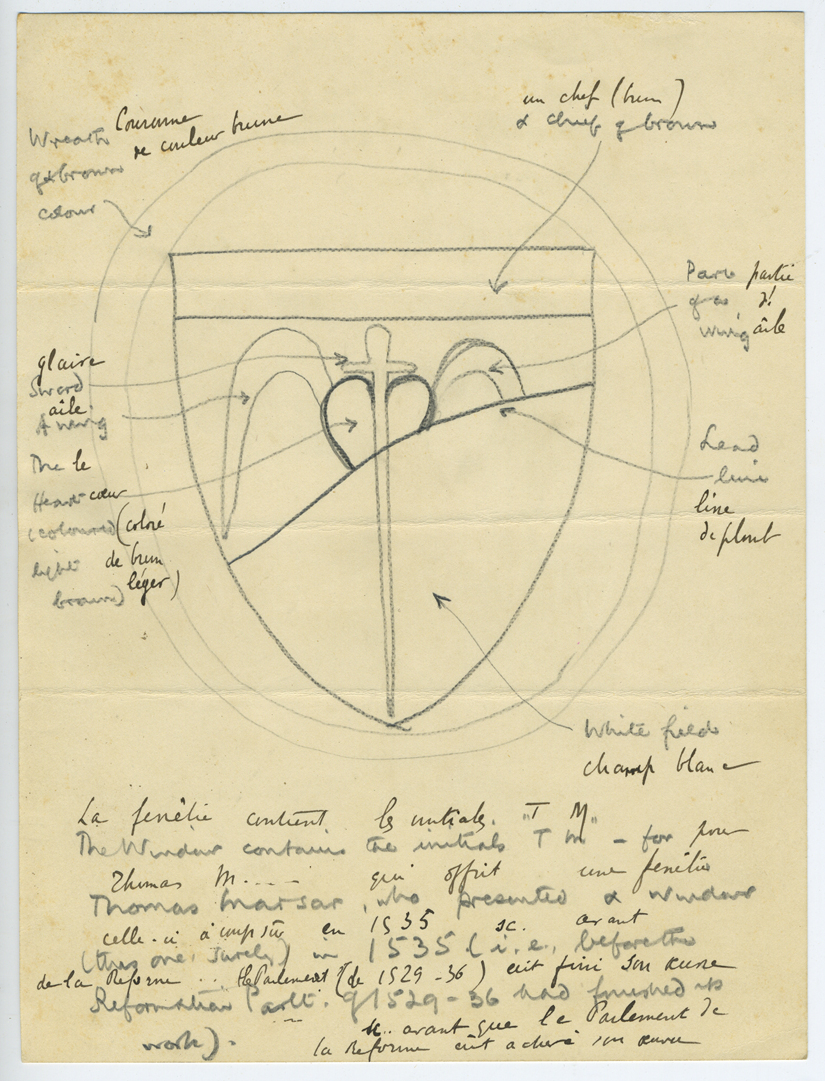 un chef (brun)
a chief of brown
Couronne
de couleur brune
Wreath
of brown
colour
Part partie
of a d'
wing aîle
glaive
Sword
aîle
A wing
The le
Heart cœur
(coloured (coloré
light de brun
brown) léger)
Lead
line
line
de plomb
White field
champ blanc
La fenêtre contient les initiales. "T M"
The Window contains the initials T M - for pour
Thomas M..... qui offrit une fenêtre
Thomas Marsar, who presented a window
celle-ci à coup sûr en 1535 sc. avant
(this one, surely) in 1535 (i.e., before the
de la Reforme ... le Parlement (de 1529-36) eût fini son œuvre
Reformation Parlt. of 1529-36 had finished its
sc. avant que le Parlement de
work).
la Reforme eût achevé son œuvre